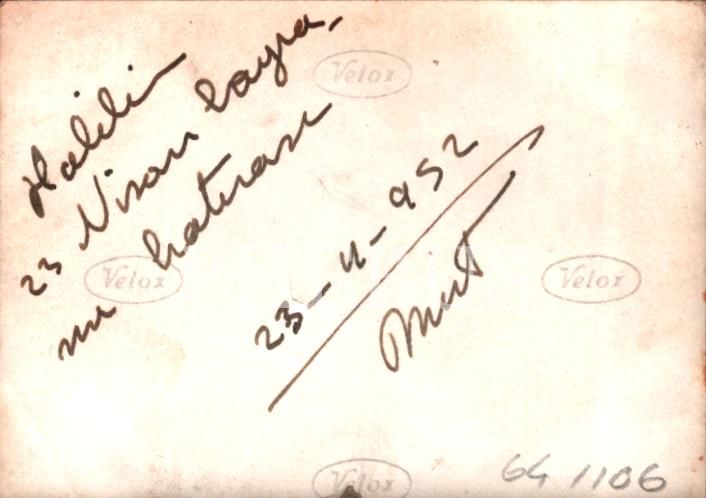 Halilin
23 Nisan bayra
mı hatırası
23-4-952
Velox
Velox
Velox
Velox
64 1106